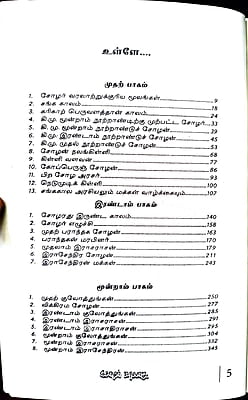 உள்ளே....
முதற் பாகம்
1. சோழர் வரலாற்றுக்குரிய மூலங்கள் 9
2. சங்க காலம் 18
3. கரிகாற் பெருவளத்தான் காலம் 24
4. கி.மு. மூன்றாம் நூற்றாண்டிற்கு முற்பட்ட சோழர் 33
5. கி.மு. மூன்றாம் நூற்றாண்டுச் சோழன்
6. கி.மு. இரண்டாம் நூற்றாண்டுச் சோழர்
7. கி.மு. முதல் நூற்றாண்டுச் சோழன் 53
8. சோழன் நலங்கிள்ளி 68
9. கிள்ளி வளவன் 77
10. கோப்பெருஞ் சோழன் 86
11. பிற சோழ அரசர் 93
12. நெடுமுடிக் கிள்ளி 100
13. சங்ககால அரசியலும் மக்கள் வாழ்க்கையும் 107
இரண்டாம் பாகம்
1. சோழரது இருண்ட காலம் 140
2. சோழர் எழுச்சி 158
3. முதற் பராந்தக சோழன் 163
4. பராந்தகன் மரபினர்
5. முதலாம் இராசராசன்
6. இராசேந்திர சோழன் 211
7. இராசேந்திரன் மக்கள் 243
மூன்றாம் பாகம்
1. முதற் குலோத்துங்கன் 250
2. விக்கிரம சோழன் 277
3. இரண்டாம் குலோத்துங்கன் 285
4. இரண்டாம் இராசராசன் 291
5. இரண்டாம் இராசாதிராசன் 295
6. மூன்றாம் குலோத்துங்கன் 304
7. மூன்றாம் இராசராசன் 332
8. மூன்றாம் இராசேந்திரன் 345
சோழர் வரலாறு
5